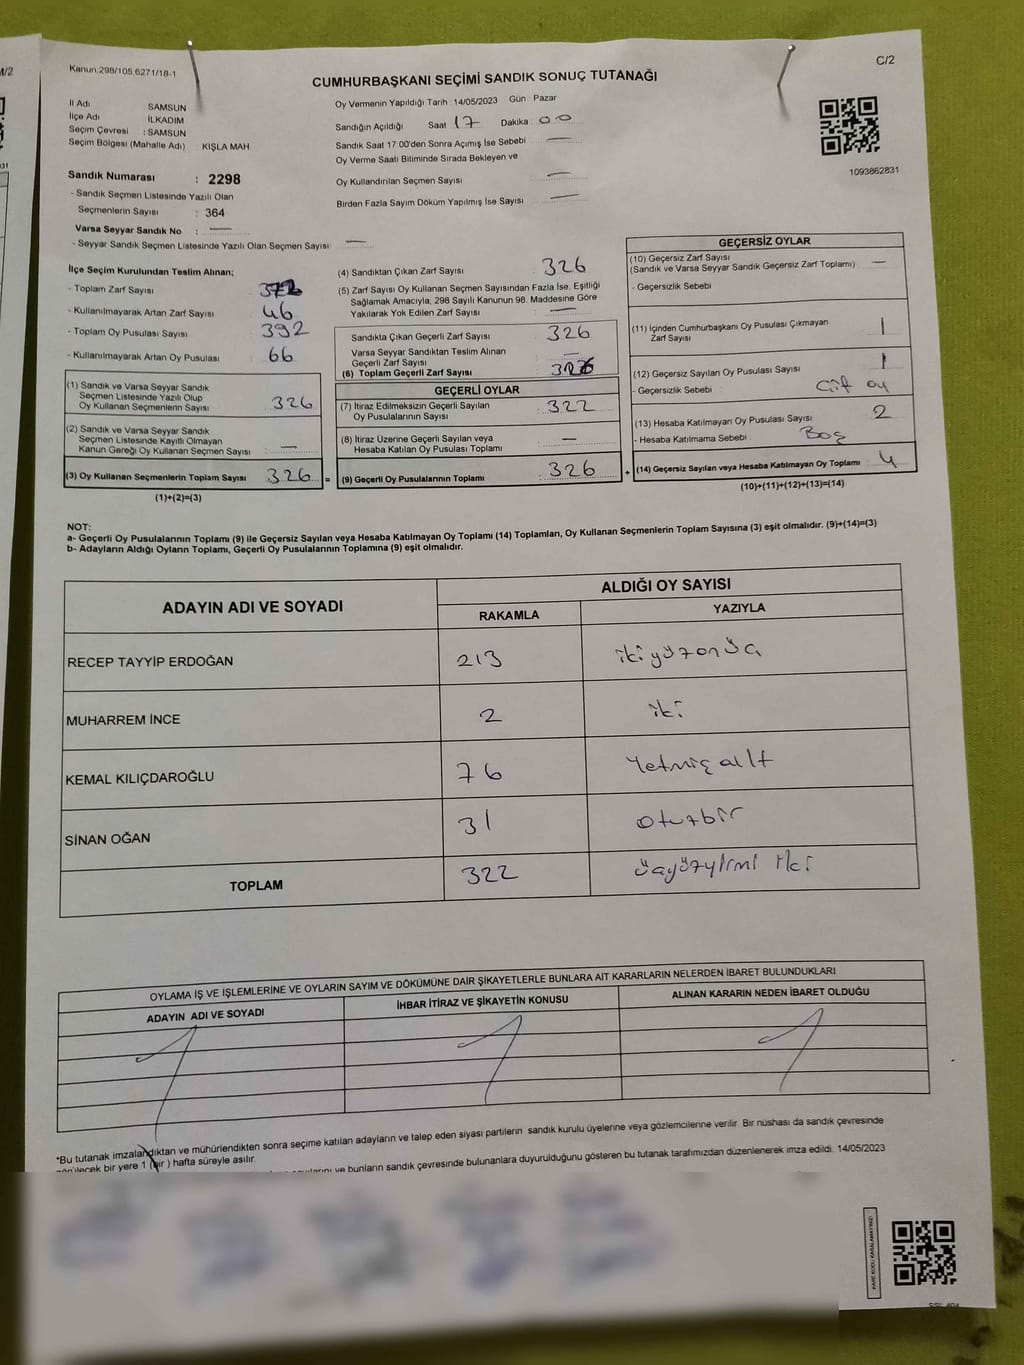 M/2
Kanun:298/105,6271/18-1
C/2
CUMHURBAŞKANI SEÇİMİ SANDIK SONUÇ TUTANAĞI
İl Adı SAMSUN
İlçe Adı İLKADIM
Seçim Çevresi : SAMSUN
Seçim Bölgesi (Mahalle Adı) KIŞLA MAH.
Oy Vermenin Yapıldığı Tarih 14/05/2023 Gün Pazar
Sandığın Açıldığı Saat 17 Dakika 00
Sandık Saat 17:00'den Sonra Açımış İse Sebebi —
Oy Verme Saati Bitiminde Sırada Bekleyen ve
Oy Kullandırılan Seçmen Sayısı —
Birden Fazla Sayım Döküm Yapılmış İse Sayısı —
1093862831
Sandık Numarası : 2298
- Sandık Seçmen Listesinde Yazılı Olan
Seçmenlerin Sayısı : 364
Varsa Seyyar Sandık No : —
- Seyyar Sandık Seçmen Listesinde Yazılı Olan Seçmen Sayısı —
İlçe Seçim Kurulundan Teslim Alınan;
- Toplam Zarf Sayısı : 372
- Kullanılmayarak Artan Zarf Sayısı : 46
- Toplam Oy Pusulası Sayısı : 392
- Kullanılmayarak Artan Oy Pusulası : 66
(1) Sandık ve Varsa Seyyar Sandık
Seçmen Listesinde Yazılı Olup
Oy Kullanan Seçmenlerin Sayısı : 326
(2) Sandık ve Varsa Seyyar Sandık
Seçmen Listesinde Kayıtlı Olmayan
Kanun Gereği Oy Kullanan Seçmen Sayısı : —
(3) Oy Kullanan Seçmenlerin Toplam Sayısı 326 =
(1)+(2)=(3)
(4) Sandıktan Çıkan Zarf Sayısı : 326
(5) Zarf Sayısı Oy Kullanan Seçmen Sayısından Fazla İse, Eşitliği
Sağlamak Amacıyla, 298 Sayılı Kanunun 98. Maddesine Göre
Yakılarak Yok Edilen Zarf Sayısı : —
Sandıkta Çıkan Geçerli Zarf Sayısı : 326
Varsa Seyyar Sandıktan Teslim Alınan
Geçerli Zarf Sayısı : —
(6) Toplam Geçerli Zarf Sayısı : 326
GEÇERLİ OYLAR
(7) İtiraz Edilmeksizin Geçerli Sayılan
Oy Pusulalarının Sayısı : 322
(8) İtiraz Üzerine Geçerli Sayılan veya
Hesaba Katılan Oy Pusulası Toplamı : —
(9) Geçerli Oy Pusulalarının Toplamı : 326 +
GEÇERSİZ OYLAR
(10) Geçersiz Zarf Sayısı
(Sandık ve Varsa Seyyar Sandık Geçersiz Zarf Toplamı) : —
- Geçersizlik Sebebi
(11) İçinden Cumhurbaşkanı Oy Pusulası Çıkmayan
Zarf Sayısı : 1
(12) Geçersiz Sayılan Oy Pusulası Sayısı : 1
- Geçersizlik Sebebi : Çift oy
(13) Hesaba Katılmayan Oy Pusulası Sayısı : 2
- Hesaba Katılmama Sebebi : Boş
(14) Geçersiz Sayılan veya Hesaba Katılmayan Oy Toplamı : 4
(10)+(11)+(12)+(13)=(14)
NOT:
a- Geçerli Oy Pusulalarının Toplamı (9) ile Geçersiz Sayılan veya Hesaba Katılmayan Oy Toplamı (14) Toplamları, Oy Kullanan Seçmenlerin Toplam Sayısına (3) eşit olmalıdır. (9)+(14)=(3)
b- Adayların Aldığı Oyların Toplamı, Geçerli Oy Pusulalarının Toplamına (9) eşit olmalıdır.
ADAYIN ADI VE SOYADI
ALDIĞI OY SAYISI
RAKAMLA YAZIYLA
RECEP TAYYİP ERDOĞAN 213 ikiyüzonüç
MUHARREM İNCE 2 iki
KEMAL KILIÇDAROĞLU 76 Yetmiş altı
SİNAN OĞAN 31 otuzbir
TOPLAM 322 üçyüzyirmi iki
OYLAMA İŞ VE İŞLEMLERİNE VE OYLARIN SAYIM VE DÖKÜMÜNE DAİR ŞİKAYETLERLE BUNLARA AİT KARARLARIN NELERDEN İBARET BULUNDUKLARI
ADAYIN ADI VE SOYADI İHBAR İTİRAZ VE ŞİKAYETİN KONUSU ALINAN KARARIN NEDEN İBARET OLDUĞU
*Bu tutanak imzalandıktan ve mühürlendikten sonra seçime katılan adayların ve talep eden siyasi partilerin sandık kurulu üyelerine veya gözlemcilerine verilir. Bir nüshası da sandık çevresinde
görülecek bir yere 1 (bir) hafta süreyle asılır.
ve bunların sandık çevresinde bulunanlara duyurulduğunu gösteren bu tutanak tarafımızdan düzenlenerek imza edildi. 14/05/2023
KARE KODU KARALAMAYINIZ!